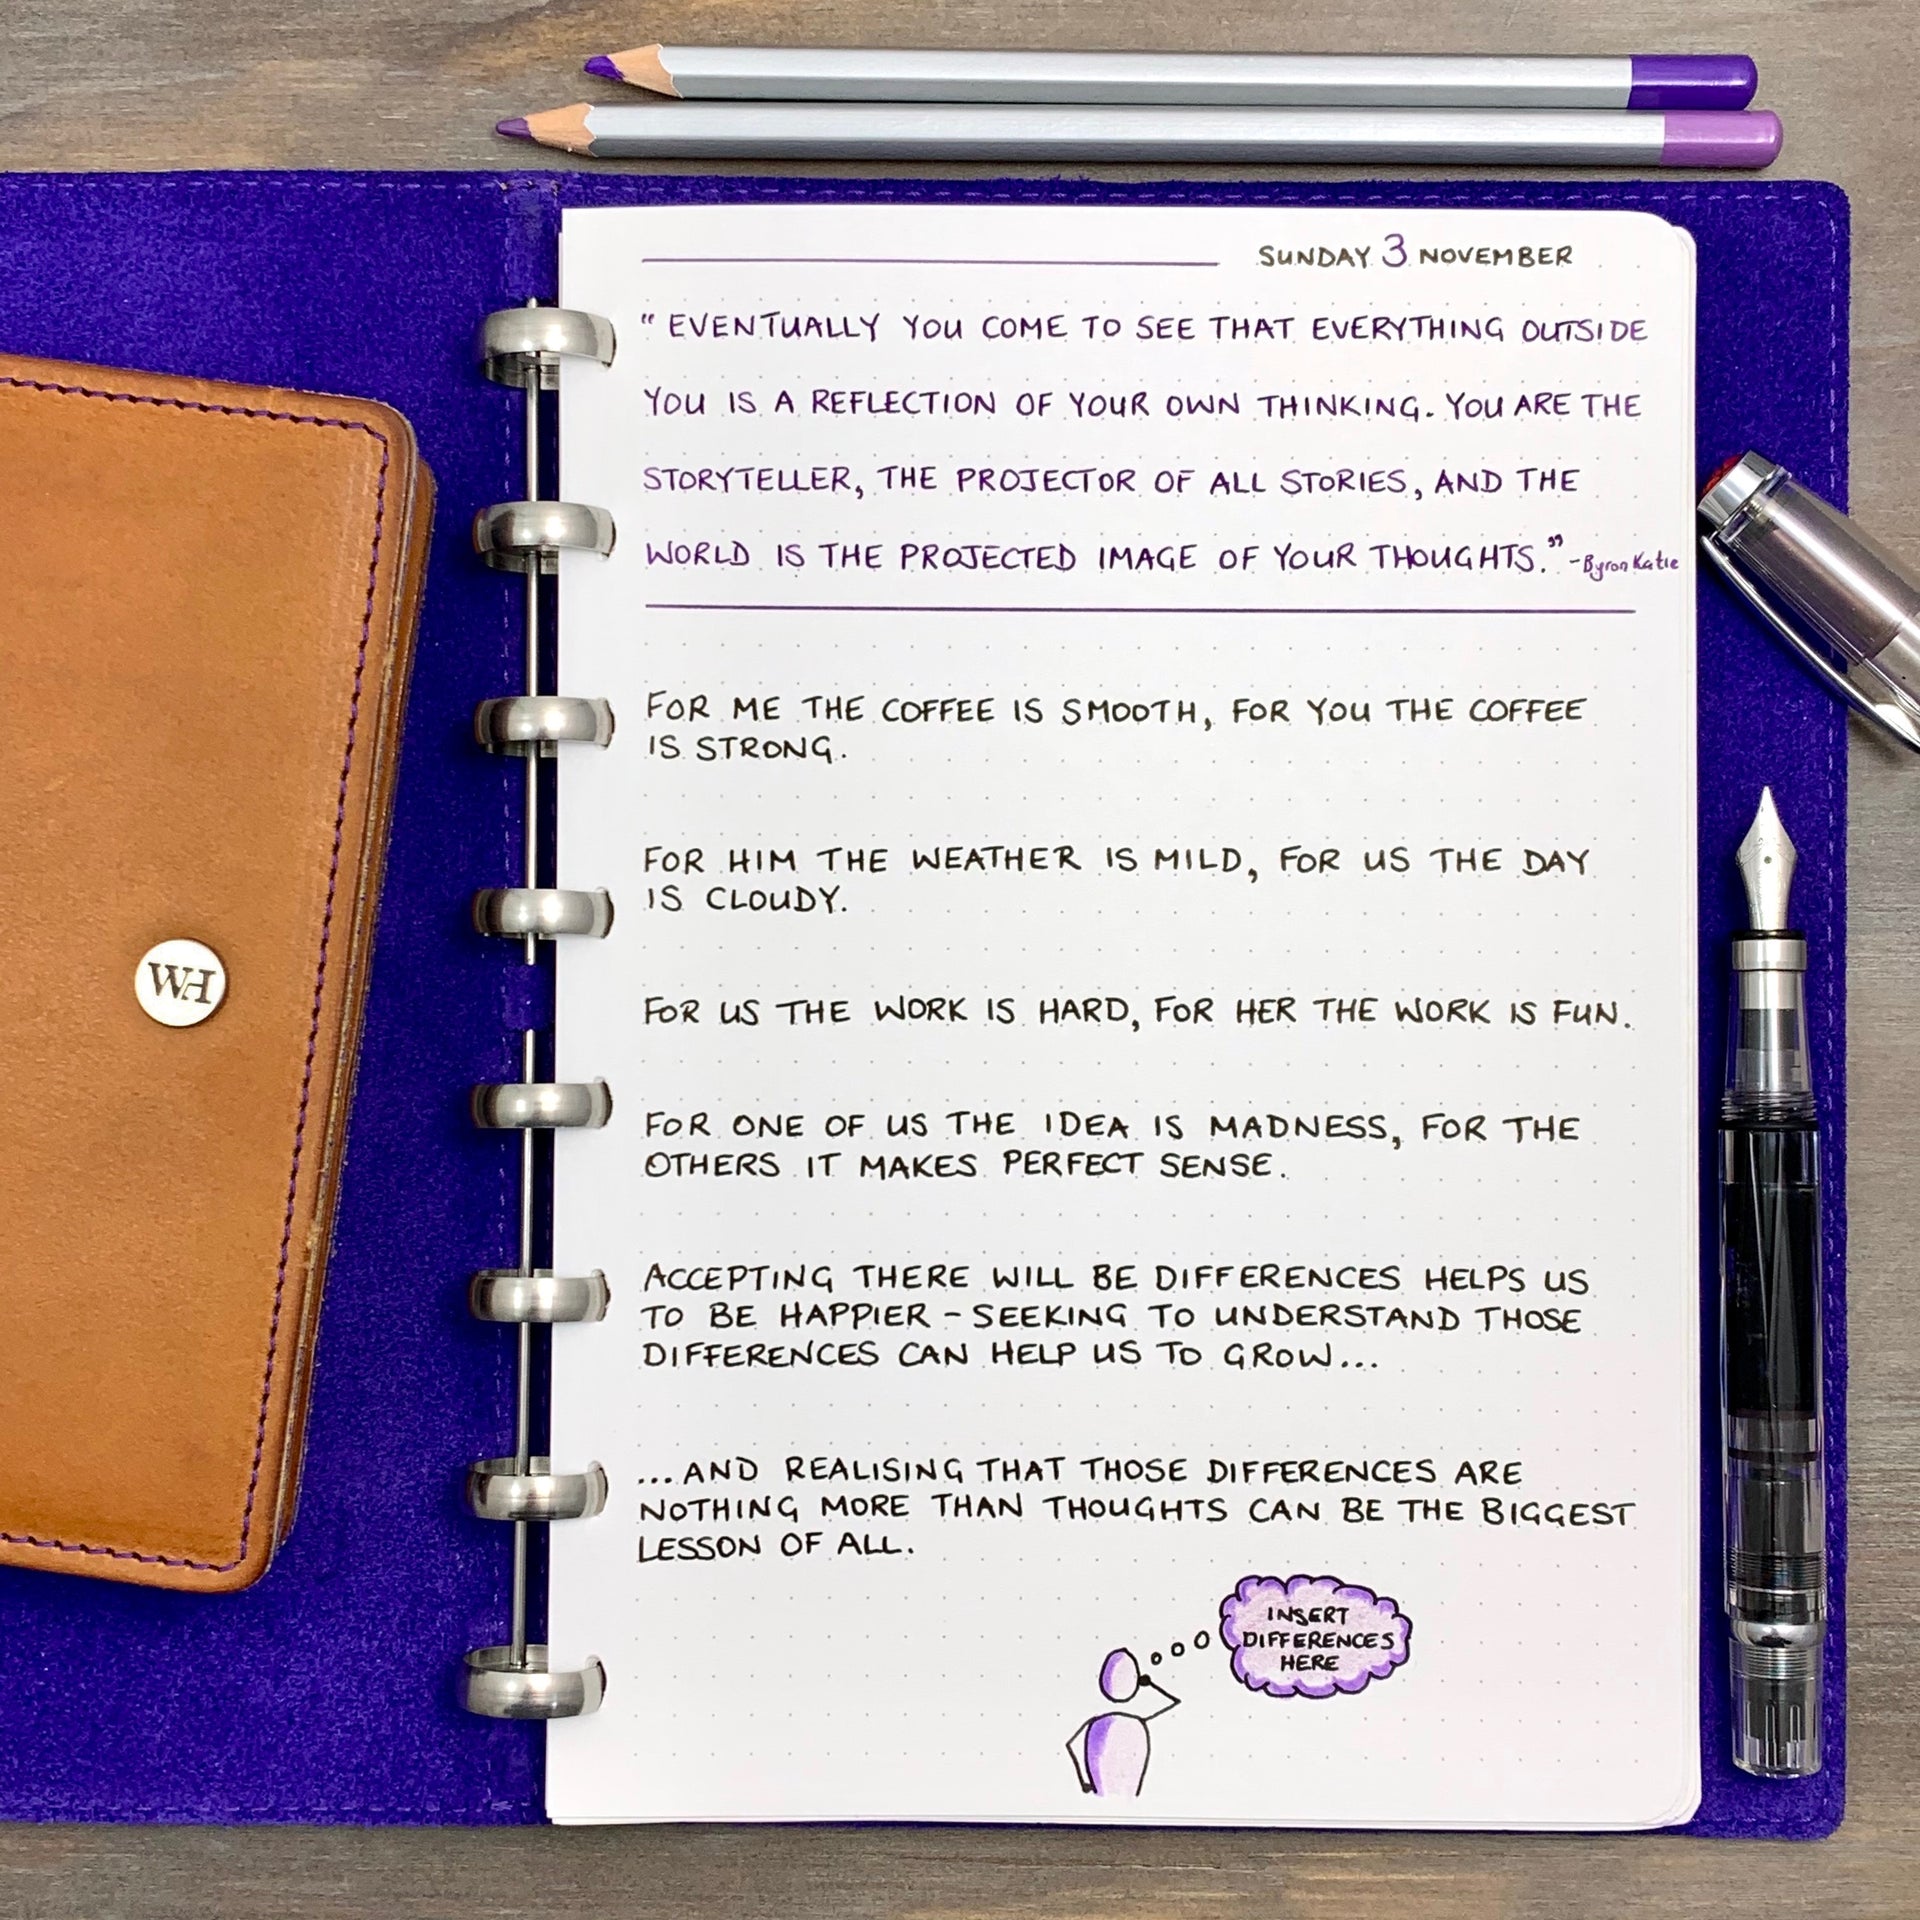 SUNDAY 3 NOVEMBER
"EVENTUALLY YOU COME TO SEE THAT EVERYTHING OUTSIDE
YOU IS A REFLECTION OF YOUR OWN THINKING. YOU ARE THE
STORYTELLER, THE PROJECTOR OF ALL STORIES, AND THE
WORLD IS THE PROJECTED IMAGE OF YOUR THOUGHTS." -Byron Katie
FOR ME THE COFFEE IS SMOOTH, FOR YOU THE COFFEE
IS STRONG.
FOR HIM THE WEATHER IS MILD, FOR US THE DAY
IS CLOUDY.
FOR US THE WORK IS HARD, FOR HER THE WORK IS FUN.
FOR ONE OF US THE IDEA IS MADNESS, FOR THE
OTHERS IT MAKES PERFECT SENSE.
ACCEPTING THERE WILL BE DIFFERENCES HELPS US
TO BE HAPPIER - SEEKING TO UNDERSTAND THOSE
DIFFERENCES CAN HELP US TO GROW...
...AND REALISING THAT THOSE DIFFERENCES ARE
NOTHING MORE THAN THOUGHTS CAN BE THE BIGGEST
LESSON OF ALL.
INSERT
DIFFERENCES
HERE
WH